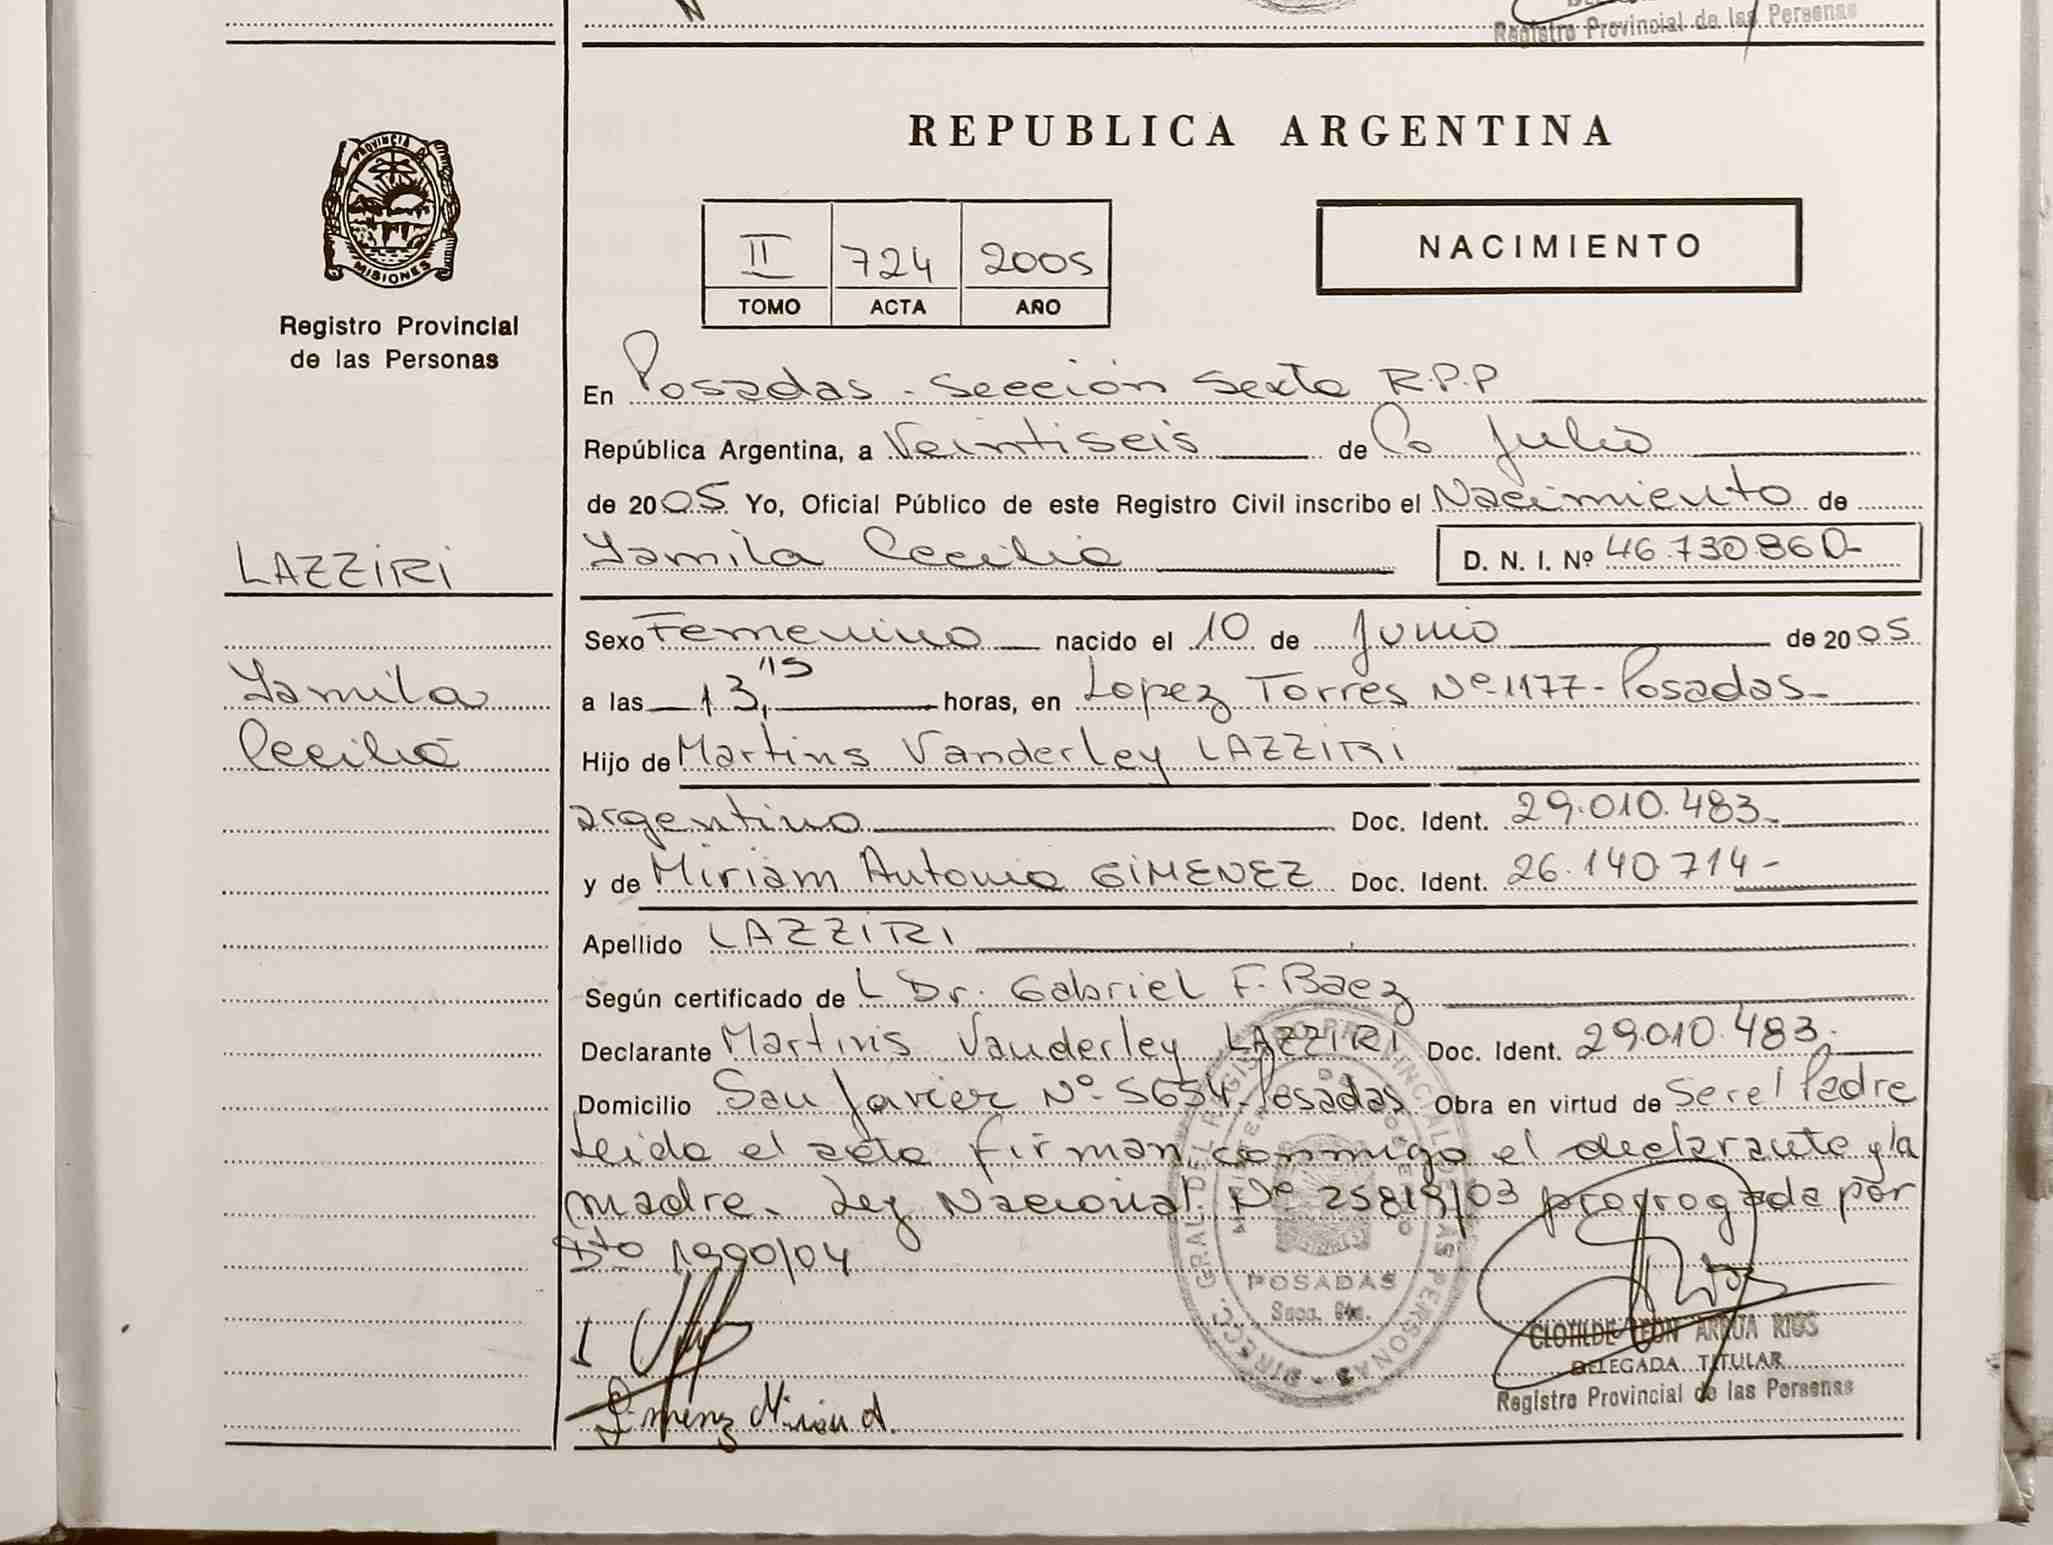 Registro Provincial de las Personas
PROVINCIA D
MISIONES
Registro Provincial
de las Personas
REPUBLICA ARGENTINA
II 724 2005
TOMO ACTA AÑO
NACIMIENTO
En Posadas - Sección Sexta R.P.P
República Argentina, a Veintiseis de Julio
de 2005 Yo, Oficial Público de este Registro Civil inscribo el Nacimiento de
Yamila Cecilia D. N. I. Nº 46.730.860-
LAZZIRI
Yamila
Cecilia
Sexo Femenino nacido el 10 de Junio de 2005
a las 13,15 horas, en Lopez Torres Nº 1177- Posadas-
Hijo de Martins Vanderley LAZZIRI
argentino Doc. Ident. 29.010.483-
y de Miriam Antonia GIMENEZ Doc. Ident. 26.140.714-
Apellido LAZZIRI
Según certificado de L Dr. Gabriel F. Baez
Declarante Martins Vanderley LAZZIRI Doc. Ident. 29.010.483.
Domicilio San Javier Nº 5654- Posadas Obra en virtud de Ser el Padre
Leida el acta firman conmigo el declarante y la
madre. Ley Nacional Nº 25819/03 prorrogada por
Dto 1990/04
DIRECC. GRAL. DEL REGISTRO PROVINCIAL DE LAS PERSONAS
POSADAS
Secc. 6ta.
Gimenez Miriam A.
CLOTILDE ARGUA RIOS
DELEGADA TITULAR
Registro Provincial de las Personas